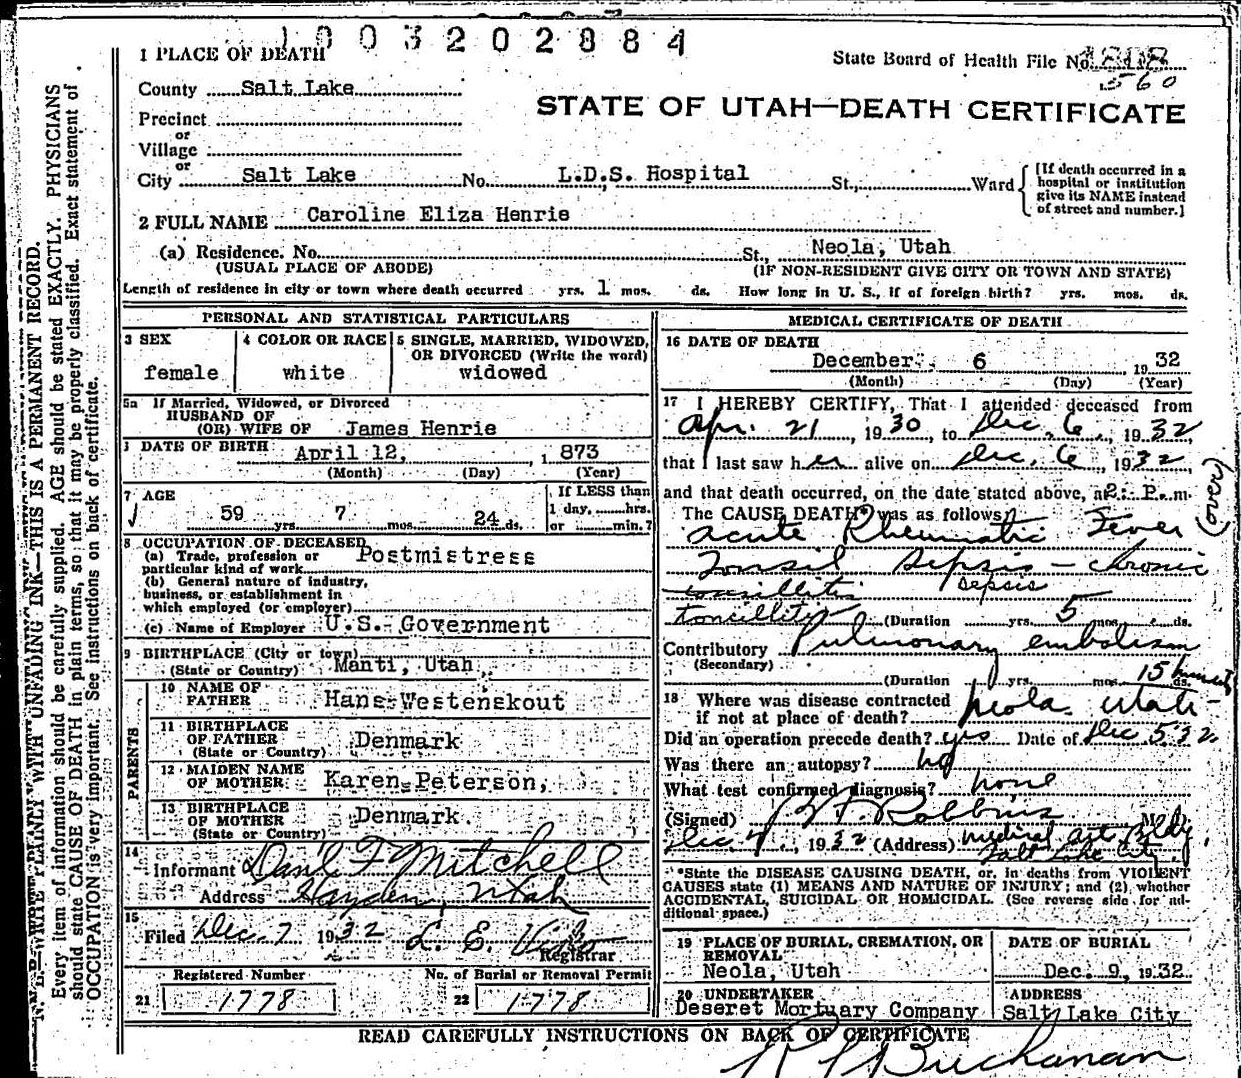 1003202884
1 PLACE OF DEATH
State Board of Health File No. 1808
560
County Salt Lake
STATE OF UTAH—DEATH CERTIFICATE
Precinct
or
Village
or
City Salt Lake No. L.D.S. Hospital St., Ward
[If death occurred in a hospital or institution give its NAME instead of street and number.]
2 FULL NAME Caroline Eliza Henrie
(a) Residence. No. St., Neola, Utah
(USUAL PLACE OF ABODE) (IF NON-RESIDENT GIVE CITY OR TOWN AND STATE)
Length of residence in city or town where death occurred yrs. 1 mos. ds. How long in U. S., if of foreign birth? yrs. mos. ds.
PERSONAL AND STATISTICAL PARTICULARS
3 SEX
female
4 COLOR OR RACE
white
5 SINGLE, MARRIED, WIDOWED,
OR DIVORCED (Write the word)
widowed
5a If Married, Widowed, or Divorced
HUSBAND OF
(OR) WIFE OF James Henrie
DATE OF BIRTH April 12, 1873
(Month) (Day) (Year)
7 AGE
If LESS than
59 yrs. 7 mos. 24 ds.
1 day, hrs.
or min.?
8 OCCUPATION OF DECEASED
(a) Trade, profession or
particular kind of work Postmistress
(b) General nature of industry,
business, or establishment in
which employed (or employer)
(c) Name of Employer U.S. Government
9 BIRTHPLACE (City or town)
(State or Country) Manti, Utah
PARENTS
10 NAME OF
FATHER Hans Westenskout
11 BIRTHPLACE
OF FATHER Denmark
(State or Country)
12 MAIDEN NAME
OF MOTHER Karen Peterson,
13 BIRTHPLACE
OF MOTHER Denmark.
(State or Country)
14
Informant Danl F Mitchell
Address Hayden, Utah
15
Filed Dec. 7 1932 L. E. Viko
Registrar
Registered Number No. of Burial or Removal Permit
21 1778 22 1778
MEDICAL CERTIFICATE OF DEATH
16 DATE OF DEATH
December 6 1932
(Month) (Day) (Year)
17 I HEREBY CERTIFY, That I attended deceased from
Apr. 21, 1930, to Dec. 6, 1932
that I last saw her alive on Dec. 6, 1932
and that death occurred, on the date stated above, at 2: P. m.
The CAUSE DEATH* was as follows:
(over)
acute Rheumatic Fever
Tonsil Sepsis - chronic
tonsillitis sepsis
toncillitis
(Duration yrs. 5 mos. ds.
Contributory Pulmonary embolism
(Secondary)
(Duration yrs. mos. 15 minutes ds.
18 Where was disease contracted
if not at place of death? Neola Utah-
Did an operation precede death? yes Date of Dec 5 32
Was there an autopsy? no
What test confirmed diagnosis? none
(Signed) Robbins M. D.
Dec. 7, 1932 (Address) Medical Art Bldg,
Salt Lake City.
*State the DISEASE CAUSING DEATH, or, in deaths from VIOLENT
CAUSES state (1) MEANS AND NATURE OF INJURY; and (2) whether
ACCIDENTAL, SUICIDAL OR HOMICIDAL. (See reverse side for ad-
ditional space.)
19 PLACE OF BURIAL, CREMATION, OR
REMOVAL
Neola, Utah
DATE OF BURIAL
Dec. 9, 1932
20 UNDERTAKER
Deseret Mortuary Company
ADDRESS
Salt Lake City
READ CAREFULLY INSTRUCTIONS ON BACK OF CERTIFICATE
Buchanan
N. B.—WRITE PLAINLY WITH UNFADING INK—THIS IS A PERMANENT RECORD.
Every item of information should be carefully supplied. AGE should be stated EXACTLY. PHYSICIANS
should state CAUSE OF DEATH in plain terms, so that it may be properly classified. Exact statement of
OCCUPATION is very important. See instructions on back of certificate.